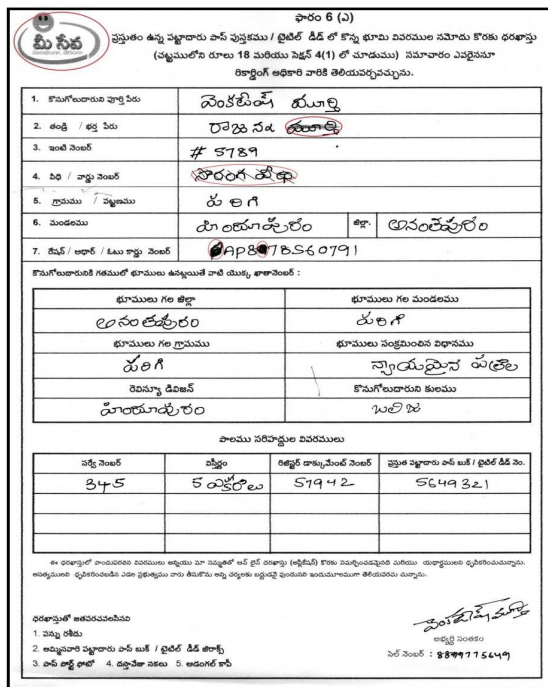 ఫారం 6 (ఎ)
మీ సేవ
ప్రస్తుతం ఉన్న పట్టాదారు పాస్ పుస్తకము / టైటిల్ డీడ్ లో కొన్న భూమి వివరముల నమోదు కొరకు ధరఖాస్తు
(చట్టములోని రూలు 18 మరియు సెక్షన్ 4(1) లో చూడుము) సమాచారం ఎవరైననూ
రికార్డింగ్ అధికారి వారికి తెలియపర్చవచ్చును.
1. కొనుగోలుదారుని పూర్తి పేరు వెంకటేష్ మూర్తి
2. తండ్రి / భర్త పేరు రాజన్న మూర్తి
3. ఇంటి నెంబర్ # 5789
4. వీధి / వార్డు నెంబర్
5. గ్రామము / పట్టణము పరిగి
6. మండలము హిందూపురం జిల్లా. అనంతపురం
7. రేషన్ / ఆధార్ / ఓటు కార్డు నెంబర్ AP8978560791
కొనుగోలుదారునికి గతములో భూములు ఉనట్లయితే వాటి యొక్క ఖాతానెంబర్ :
భూములు గల జిల్లా భూములు గల మండలము
అనంతపురం పరిగి
భూములు గల గ్రామము భూములు సంక్రమించిన విధానము
పరిగి న్యాయమైన పత్రాల
రెవిన్యూ డివిజన్ కొనుగోలుదారుని కులము
హిందూపురం బలిజ
పొలము సరిహద్దుల వివరములు
సర్వే నెంబర్ విస్తీర్ణం రిజిష్టర్ డాక్యుమెంట్ నెంబర్ ప్రస్తుత పట్టాదారు పాస్ బుక్ / టైటిల్ డీడ్ నెం.
345 5 ఎకరాలు 57942 5649321
ఈ ధరఖాస్తులో పొందుపరచిన వివరములు అన్నియు మా సమ్మతితో ఆన్ లైన్ దరఖాస్తు (అప్లికేషన్) కొరకు సమర్పించడమైనది మరియు యధార్థములని ధృవీకరించుచున్నాను.
అసత్యములని ధృవీకరించబడిన ఎడల ప్రభుత్వము వారు తీసుకొను అన్ని చర్యలకు బద్ధుడనై వుందునని ఇందుమూలముగా తెలియపరచు చున్నాను.
ధరఖాస్తుతో జతపరచవలసినవి
1. పన్ను రశీదు
వెంకటేష్ మూర్తి
అభ్యర్థి సంతకం
2. అమ్మినవారి పట్టాదారు పాస్ బుక్ / టైటిల్ డీడ్ జిరాక్స్
3. పాస్ పోర్ట్ ఫోటో 4. దస్తావేజు నకలు 5. అడంగల్ కాపీ
సెల్ నెంబర్ : 8899775649